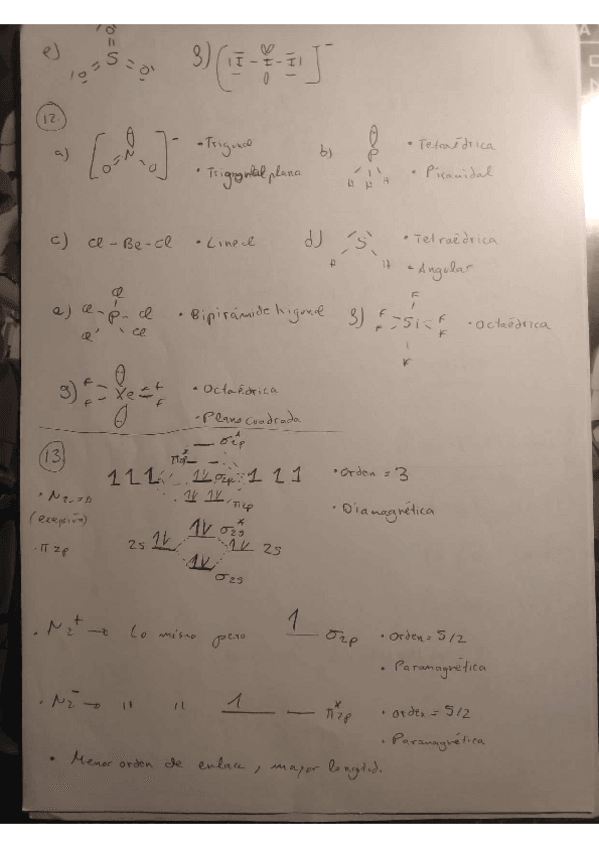 e) O = S = O O
f) ( |I - I - I| )⁻
12.
a) [ O = N O ]⁻ • Trigonal
• Trigonal plana
b) P H H H • Tetraédrica
• Piramidal
c) Cl - Be - Cl • Lineal
d) S H H • Tetraédrica
• Angular
e) Cl Cl P Cl Cl Cl • Bipirámide trigonal
f) F F F Si F F F • Octaédrica
g) F F Xe F F • Octaédrica
• Plano cuadrada
13.
σ*2p
π*2p
1 1 1 1V σ2p 1 1 1 • Orden = 3
• N2 →
1V 1V π2p • Diamagnética
(excepción)
• π 2p
1V σ*2s
2s 1V 1V 2s
1V σ2s
• N2⁺ → lo mismo pero 1 σ2p • orden = 5/2
• Paramagnética
• N2⁻ → " " 1 π*2p • orden = 5/2
• Paramagnética
• Menor orden de enlace, mayor longitud.